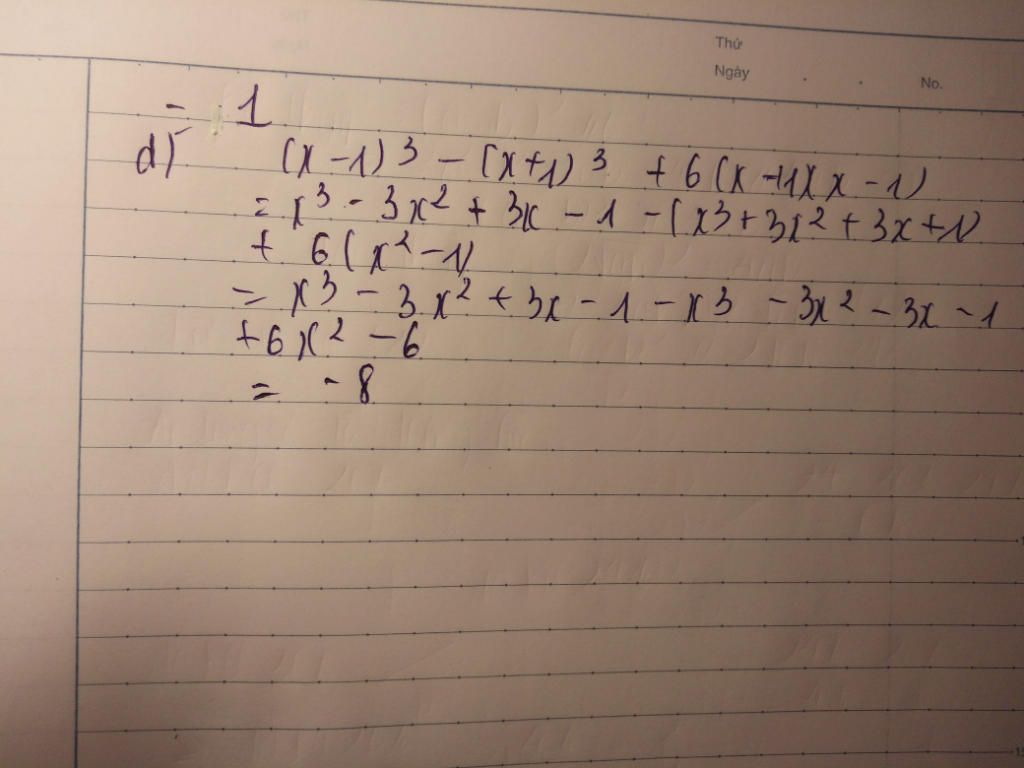 Thứ
Ngày . . No.
- 1
d) (x-1)³ - (x+1)³ + 6(x+1)(x-1)
= x³ - 3x² + 3x - 1 - (x³ + 3x² + 3x + 1)
+ 6(x² - 1)
= x³ - 3x² + 3x - 1 - x³ - 3x² - 3x - 1
+ 6x² - 6
= - 8